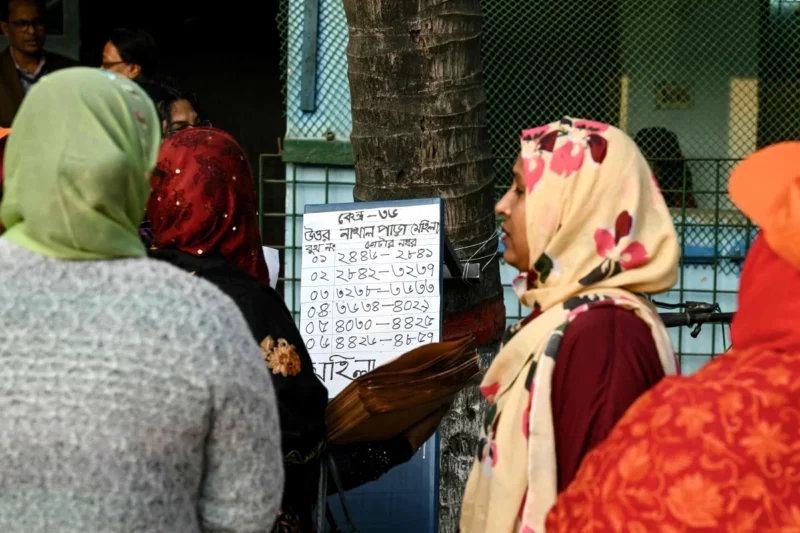 কেন্দ্র - ৩৬
উত্তর নাখাল পাড়া (মহিলা)
বুথ নং ভোটার নম্বর
০১ ২৪৪৬ – ২৮৪১
০২ ২৮৪২ – ৩২৩৭
০৩ ৩২৩৮ – ৩৬৩৩
০৪ ৩৬৩৪ – ৪০২৯
০৫ ৪০৩০ – ৪৪২৫
০৬ ৪৪২৬ – ৪৮৫৭
মহিলা